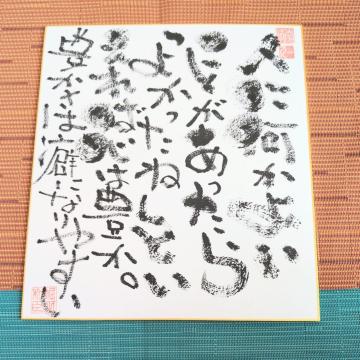 人に何かよい
ことがあったら
「よかったね」とい
えれば心は豊か。
豊かさは癖になりやすい